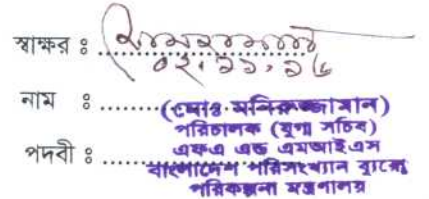 স্বাক্ষর ঃ
০২.১১.১৬
নাম ঃ (মোঃ মনিরুজ্জামান)
পরিচালক (যুগ্ম সচিব)
পদবী ঃ এফএ এন্ড এমআইএস
বাংলাদেশ পরিসংখ্যান ব্যুরো
পরিকল্পনা মন্ত্রণালয়